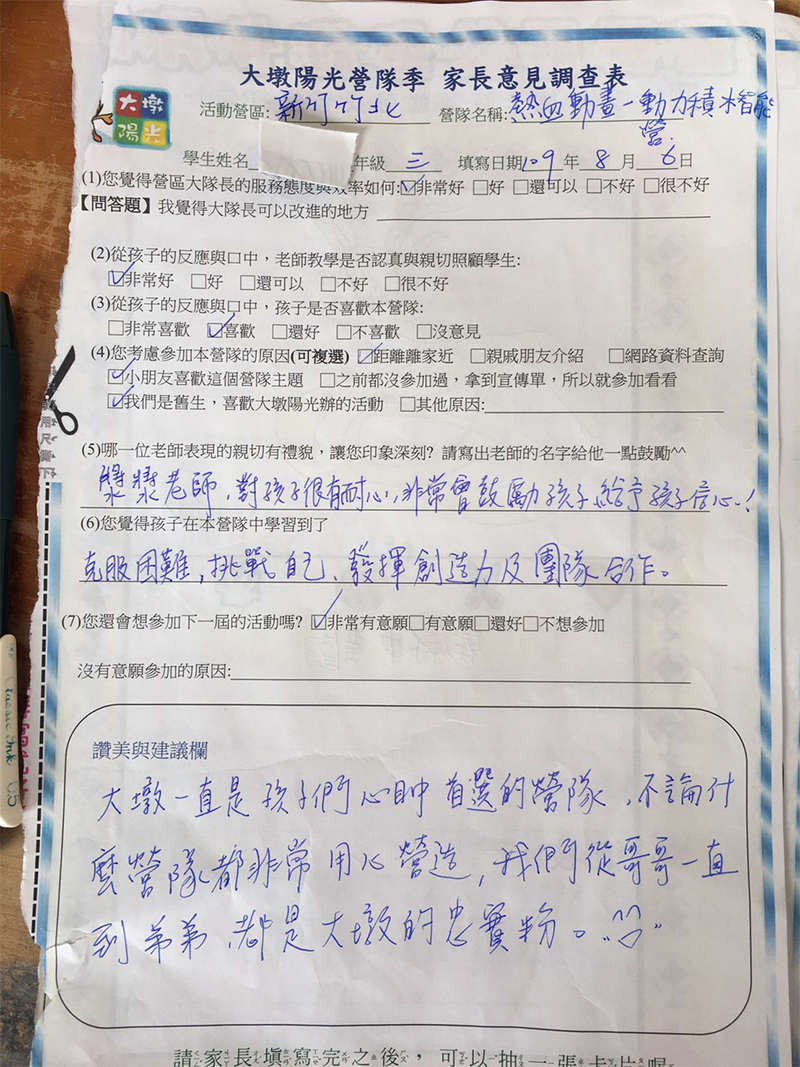 大墩陽光營隊季 家長意見調查表
大墩
陽光
活動營區:新竹竹北 營隊名稱:熱血動畫－動力積木智能
營.
學生姓名 年級 三 填寫日期109年8月6日
(1)您覺得營區大隊長的服務態度與效率如何:☑非常好 □好 □還可以 □不好 □很不好
【問答題】我覺得大隊長可以改進的地方
(2)從孩子的反應與口中，老師教學是否認真與親切照顧學生:
☑非常好 □好 □還可以 □不好 □很不好
(3)從孩子的反應與口中，孩子是否喜歡本營隊:
□非常喜歡 ☑喜歡 □還好 □不喜歡 □沒意見
(4)您考慮參加本營隊的原因(可複選) ☑距離離家近 □親戚朋友介紹 □網路資料查詢
☑小朋友喜歡這個營隊主題 □之前都沒參加過，拿到宣傳單，所以就參加看看
☑我們是舊生，喜歡大墩陽光辦的活動 □其他原因:
(5)哪一位老師表現的親切有禮貌，讓您印象深刻? 請寫出老師的名字給他一點鼓勵^^
漿漿老師，對孩子很有耐心，非常會鼓勵孩子、給予孩子信心!
(6)您覺得孩子在本營隊中學習到了
克服困難，挑戰自己、發揮創造力及團隊合作。
(7)您還會想參加下一屆的活動嗎? ☑非常有意願□有意願□還好□不想參加
沒有意願參加的原因:
讚美與建議欄
大墩一直是孩子們心目中首選的營隊，不論什
麼營隊都非常用心營造，我們從哥哥一直
到弟弟，都是大墩的忠實粉。
請家長填寫完之後，可以抽一張卡片喔
Classic Ink 0.5